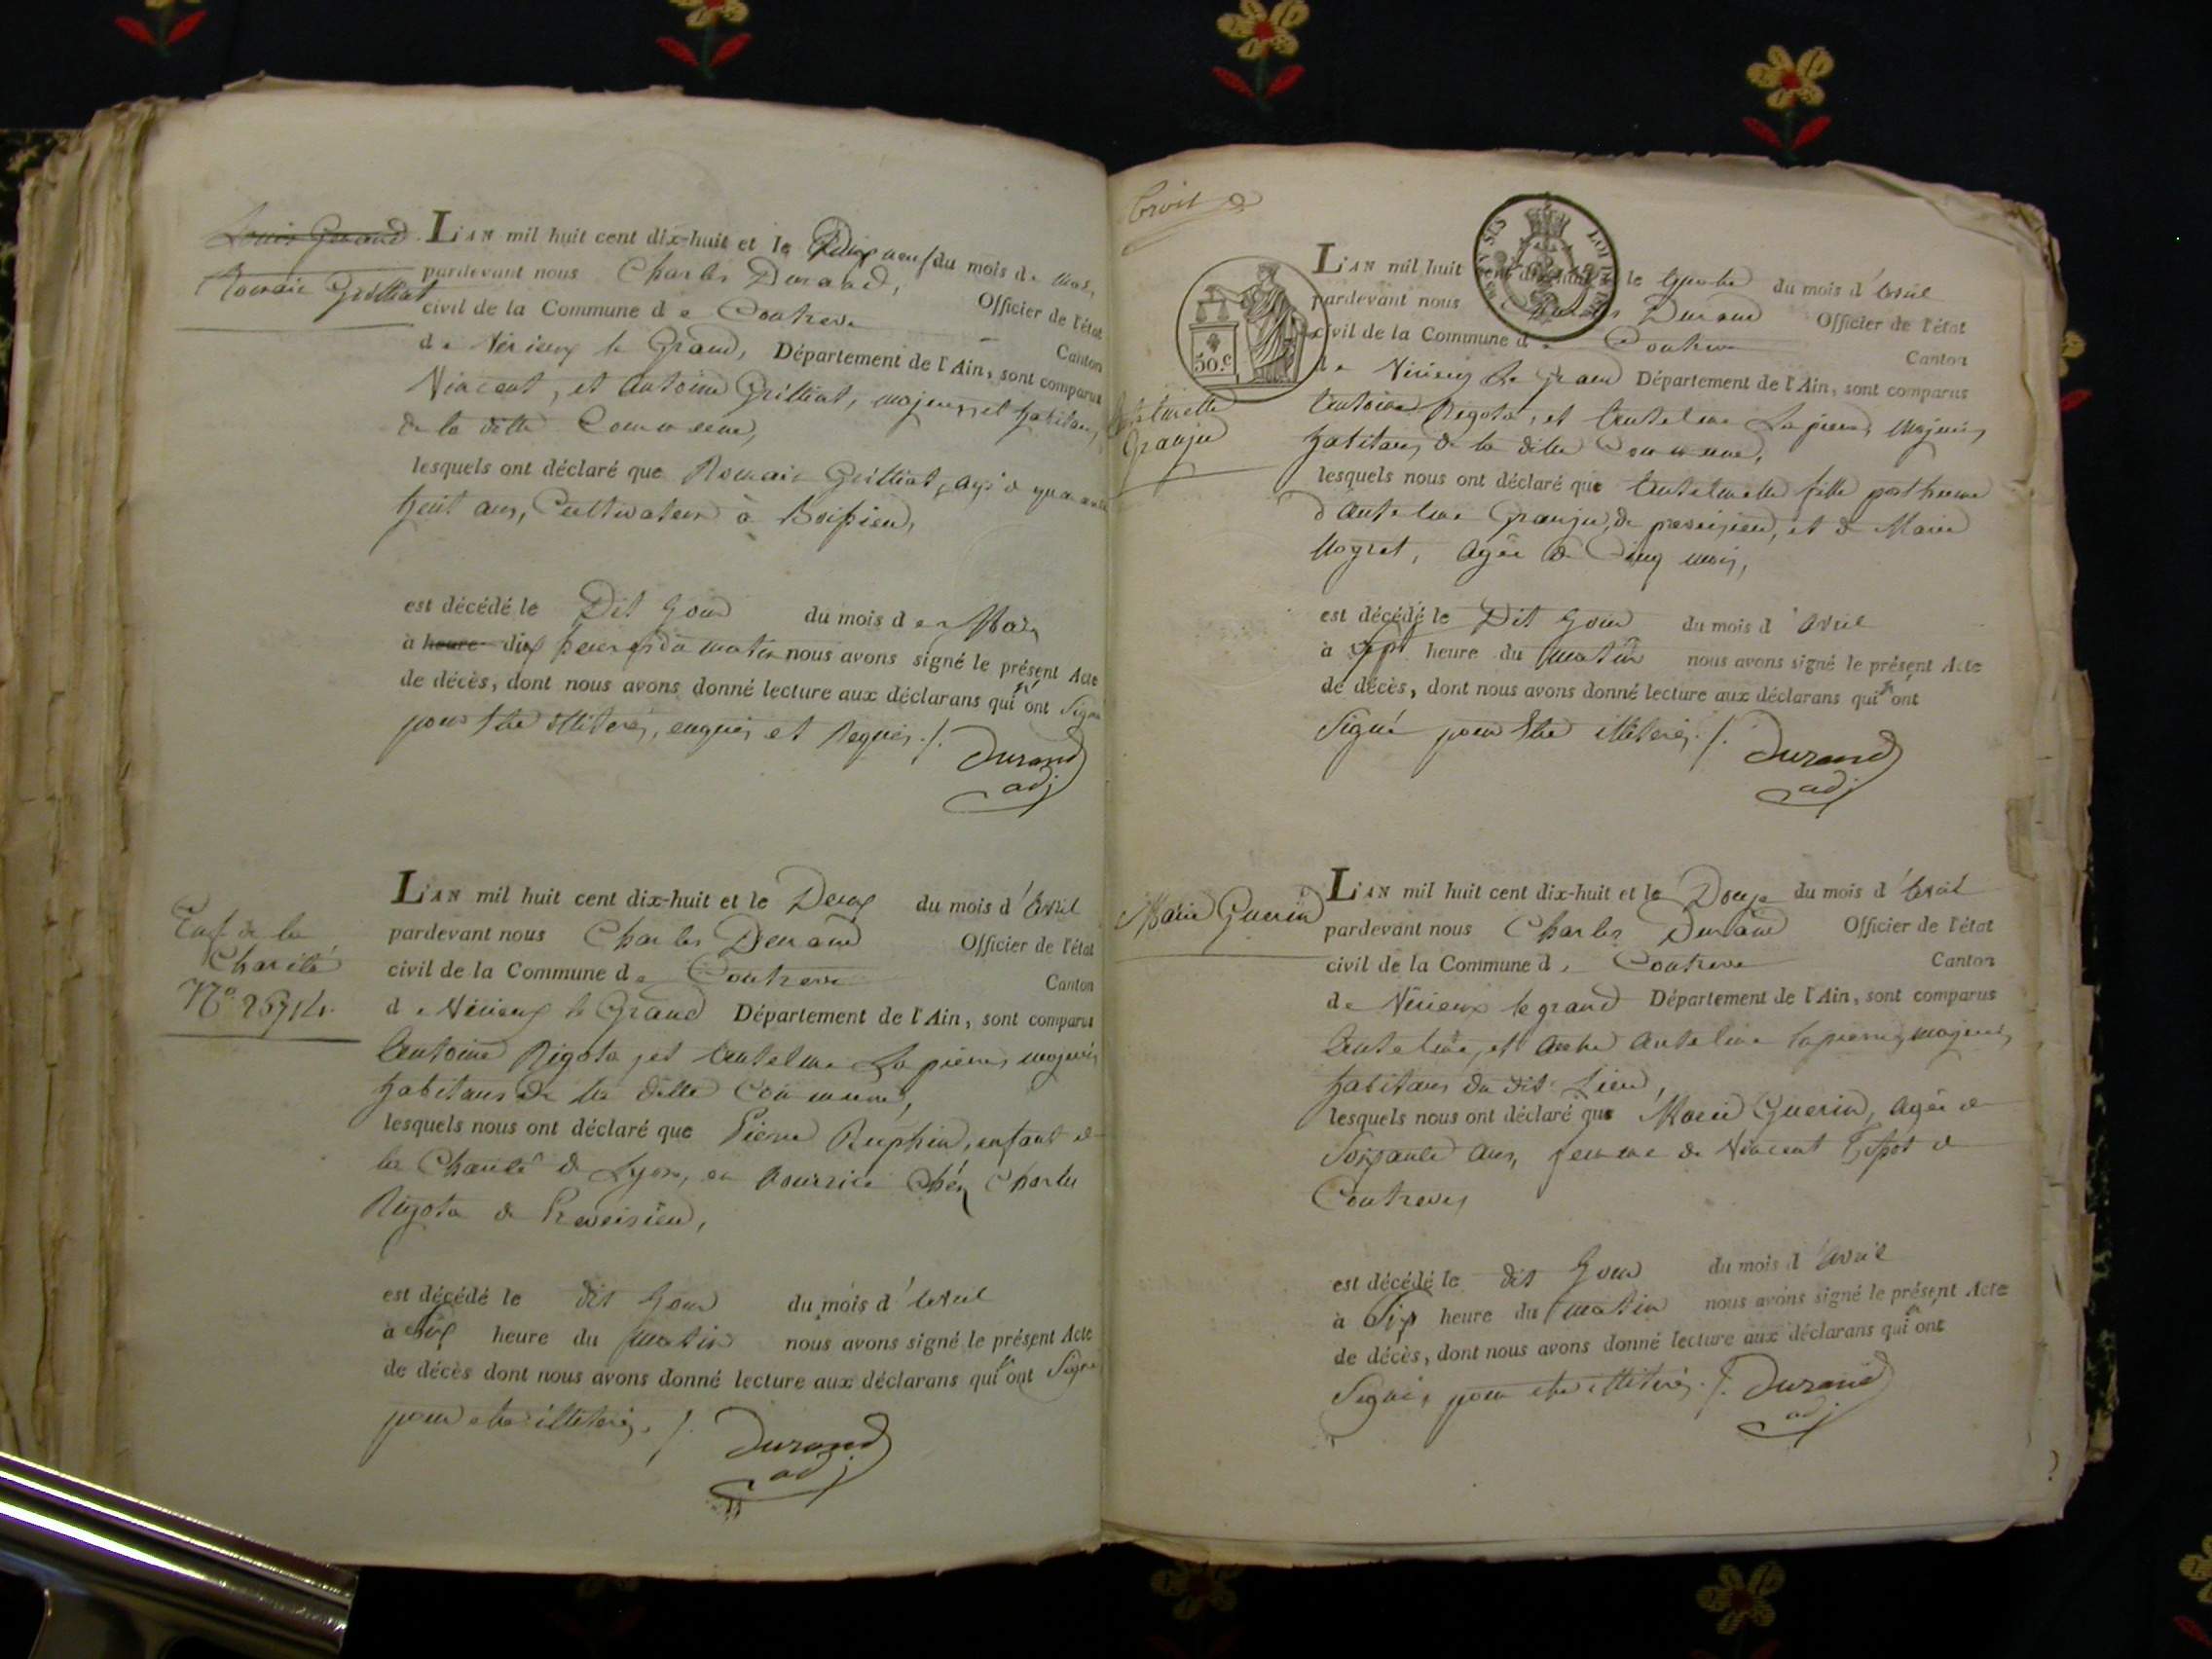 Louis Gerand
Romain Grilliat
L'AN mil huit cent dix-huit et le Dix neuf du mois de mars
pardevant nous Charles Durand, Officier de l'état
civil de la Commune de Contrevo Canton
de Virieux le Grand, Département de l'Ain, sont comparus
Vincent, et Antoine Grilliat, majeurs, et habitans
de la ditte Commune,
lesquels ont déclaré que Romain Grilliat, agé de quarante
huit ans, Cultivateur à Boissieu,
est décédé le Dit Jour du mois de Mars
à heure dix heures du matin nous avons signé le présent Acte
de décès, dont nous avons donné lecture aux déclarans qui n' ont Signé
pour être illiterés, enquis et Requis ./.
Durand
adj
Enf. de la
Charité
N.º
L'AN mil huit cent dix-huit et le Deux du mois d'Avril
pardevant nous Charles Durand Officier de l'état
civil de la Commune de Contrevo Canton
de Virieux le Grand Département de l'Ain, sont comparus
Antoine Rigota, et Antelme Lapierre, majeurs
habitans de la ditte Commune,
lesquels nous ont déclaré que Pierre Ruphin, enfant de
la Charité de Lyon, en Nourrice chez Charles
Rigota de Preveisieu,
est décédé le dit Jour du mois d'Avril
à Six heure du matin nous avons signé le présent Acte
de décès dont nous avons donné lecture aux déclarans qui n' ont Signé
pour etre illiterés ./.
Durand
adj
50.c
Antelmette
Granju
L'AN mil huit cent dix-huit et le quatre du mois d'Avril
pardevant nous Charles Durand Officier de l'état
civil de la Commune de Contrevo Canton
de Virieux Le Grand Département de l'Ain, sont comparus
Antoine Rigota, et Antelme Lapierre, Majeurs,
habitans de la ditte Commune,
lesquels nous ont déclaré que Antelmette fille posthume
d'Antelme Granju, de preveisieu, et de Marie
Mogret, Agée de Cinq mois,
est décédé le Dit Jour du mois d'Avril
à Sept heure du matin nous avons signé le présent Acte
de décès, dont nous avons donné lecture aux déclarans qui n' ont
Signé pour être illiterés ./.
Durand
adj
Marie Guerin
L'AN mil huit cent dix-huit et le Douze du mois d'Avril
pardevant nous Charles Durand Officier de l'état
civil de la Commune de Contrevo Canton
de Virieux le grand Département de l'Ain, sont comparus
Antelme, et autre Antelme Lapierre, majeurs,
habitans du dit Lieu,
lesquels nous ont déclaré que Marie Guerin, Agée de
Soixante Ans, femme de Vincent Tissot de
Contrevo,
est décédé le dit Jour du mois d'Avril
à Six heure du matin nous avons signé le présent Acte
de décès, dont nous avons donné lecture aux déclarans qui n' ont
Signé, pour etre illiterés ./. Durand
adj